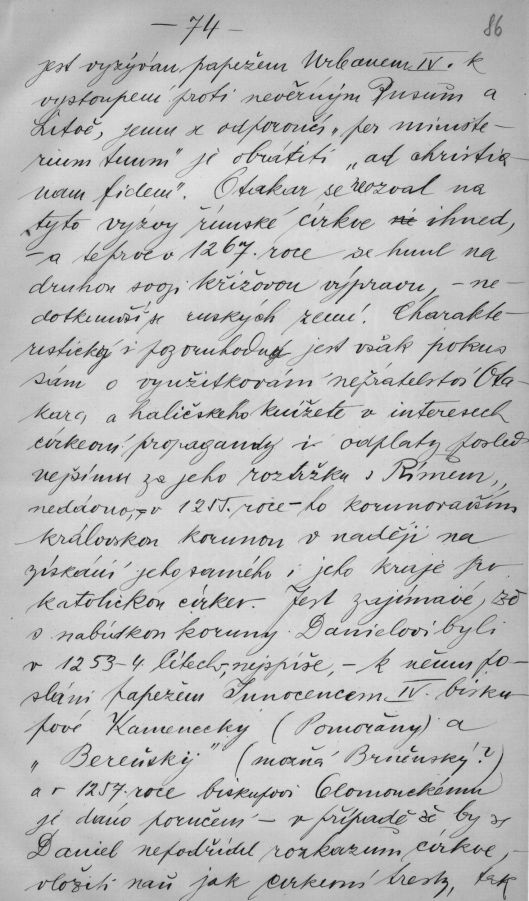 — 74 —
86
jest vyzýván papežem Urbanem IV. k
vystoupení proti nevěrným Rusům a
Litvě, jemu se odporoučí „per ministe-
rium tuum" je obrátiti „ad christia-
nam fidem". Otakar se neozval na
tyto vyzvy římské církve ihned,
— a teprve v 1267. roce se hnul na
druhou svoji křížovou výpravu, — ne-
dotknuvší se ruských zemí. Charakte-
ristický i pozoruhodný jest však pokus
sám o využitkování nepřátelství Ota-
kara a haličského knížete v interesech
církevní propagandy i odplaty posled-
nejšímu za jeho roztržku s Římem,
nedávno, v 1255. roce — ho korunovavším
královskou korunou v naději na
získání jeho samého i jeho kraje pro
katolickou církev. Jest zajímavé, že
s nabídkou koruny Danielovi byli
v 1253–4 létech, nejspíše, — k němu po-
sláni papežem Innocencem IV. bisku-
pové Kamenecky (Pomořany) a
„Bereňský" (možná Brněnský?)
a v 1257. roce biskupovi Olomouckému
je dáno poručení — v případě že by se
Daniel nepodřídil rozkazům církve, —
vložiti naň jak církevní tresty, tak